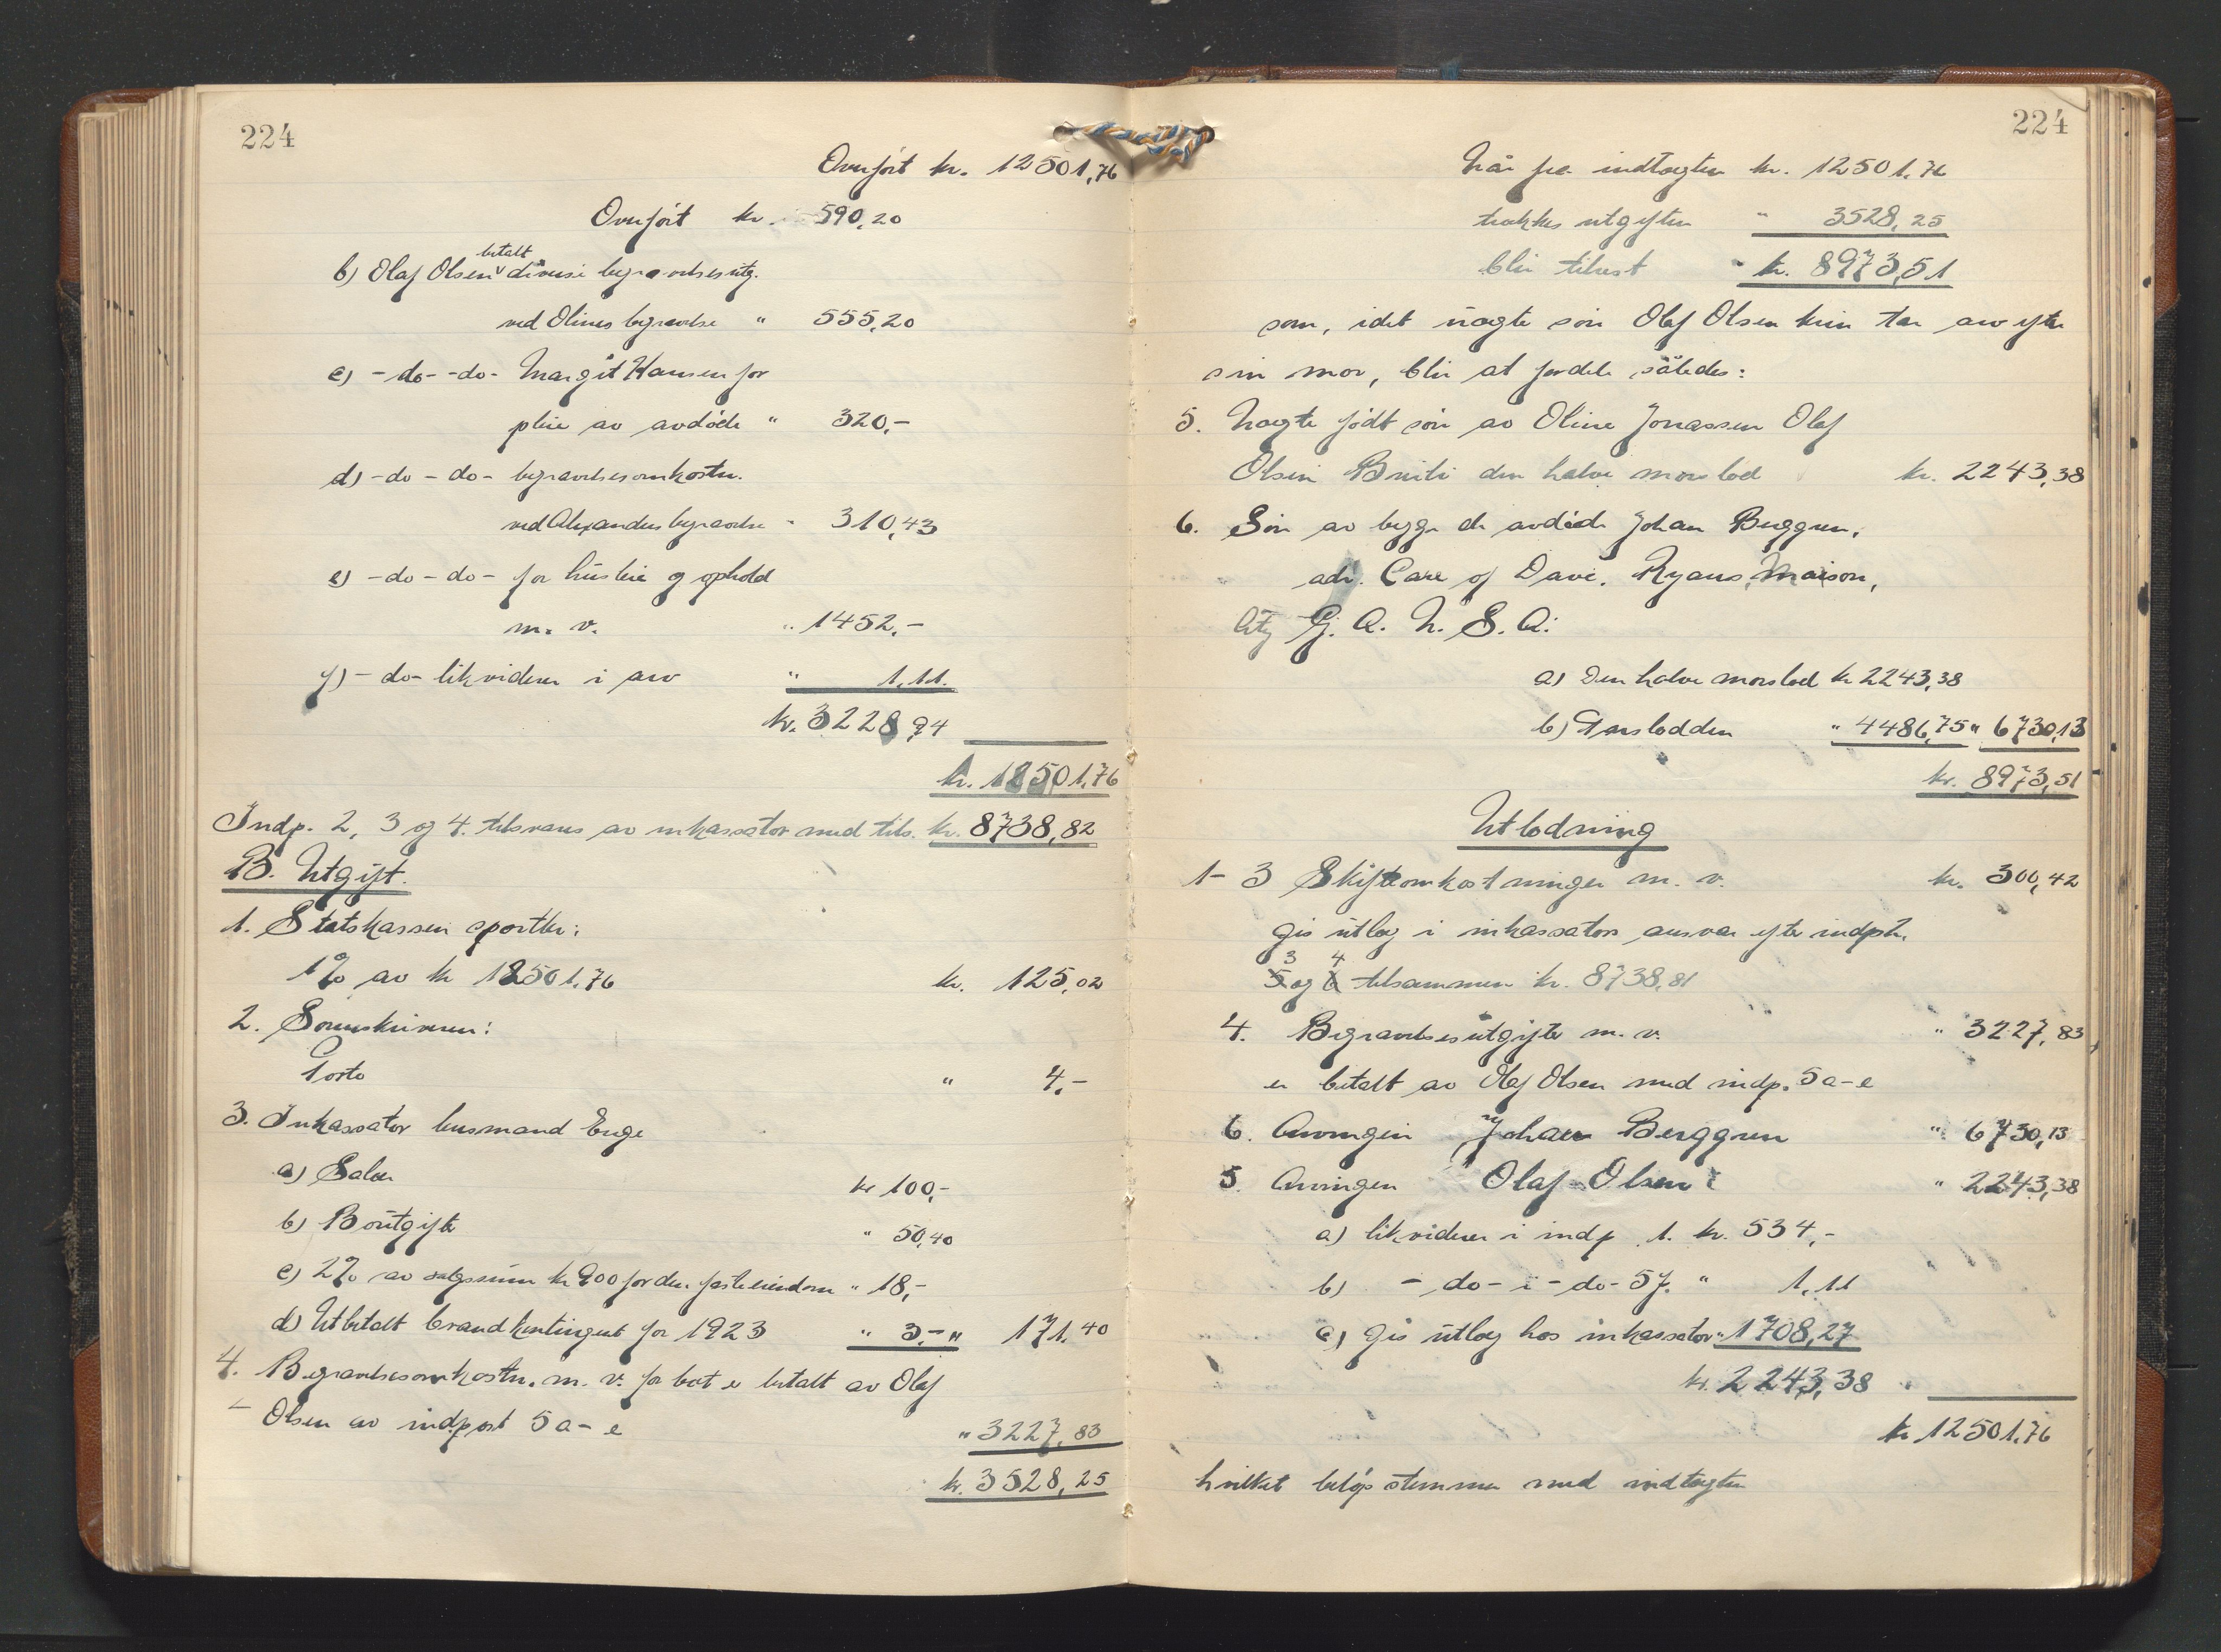 224
Overført kr. 12501,76
Overført kr. 590,20
b) Olaf Olsen betalt diverse begravelsesutg.
ved Olines begravelse " 555,20
c) -do- -do- Margit Hansen for
pleie av avdøde " 320,-
d) -do- do- begravelsesomkostn.
ved Alexanders begravelse " 310,43
e) -do-do- for husleie og ophold
m. v. " 1452.-
f) -do- likviderer i arv " 1,11.
kr. 3228,94
kr. 12501,76
Indp. 2, 3 og 4. tilsvares av inkassator med tils. kr. 8738,82
B. Utgift.
1. Statskassen sportler:
1% av kr 12501,76 kr. 125,02
2. Sorenskriveren:
Porto " 4,-
3. Inkassator lensmand Enge
a) Salær kr 100,-
b) Boutgifter " 50,40
c) 2% av salgssum kr 900 for den faste eiendom " 18,-
d) Utbetalt brandkontingent for 1923 " 3,- " 171,40
4. Begravelsesomkostn. m. v. for boet er betalt av Olaf
Olsen av indpost 5 a-e " 3227,83
kr. 3528,25
224
Når fra indtægten kr. 12501,76
trækkes utgiften " 3528,25
blir tilrest kr. 8973,51
som, idet uægte søn Olaf Olsen kun tar arv efter
sin mor, blir at fordele således:
5. Uægte født søn av Oline Jonassen Olaf
Olsen den halve morslod kr. 2243,38
6. Søn av begge de avdøde Johan Berggren,
adr. Care of Dave. Ryans, Maison,
City G. A. U. S. A:
a) Den halve morslod kr 2243,38
b) Farslodden " 4486,75 " 6730,13
kr. 8973,51
Utlodning
1- 3 Skifteomkostninger m. v. kr. 300,42
gis utlæg i inkassators ansvar efter indpst.
3 og 4 tilsammen kr. 8738,81
4. Begravelsesutgifter m. v. " 3227,83
er betalt av Olaf Olsen med indp. 5 a-e
6. Arvingen Johan Berggren " 6730,13
5. Arvingen Olaf Olsen: " 2243,38
a) likviderer i indp. 1. kr. 534,-
b) - do - i - do- 5f. " 1,11
c) gis utlæg hos inkassator " 1708,27
kr. 2243,38
kr 12501,76
hvilket beløp stemmer med indtægten